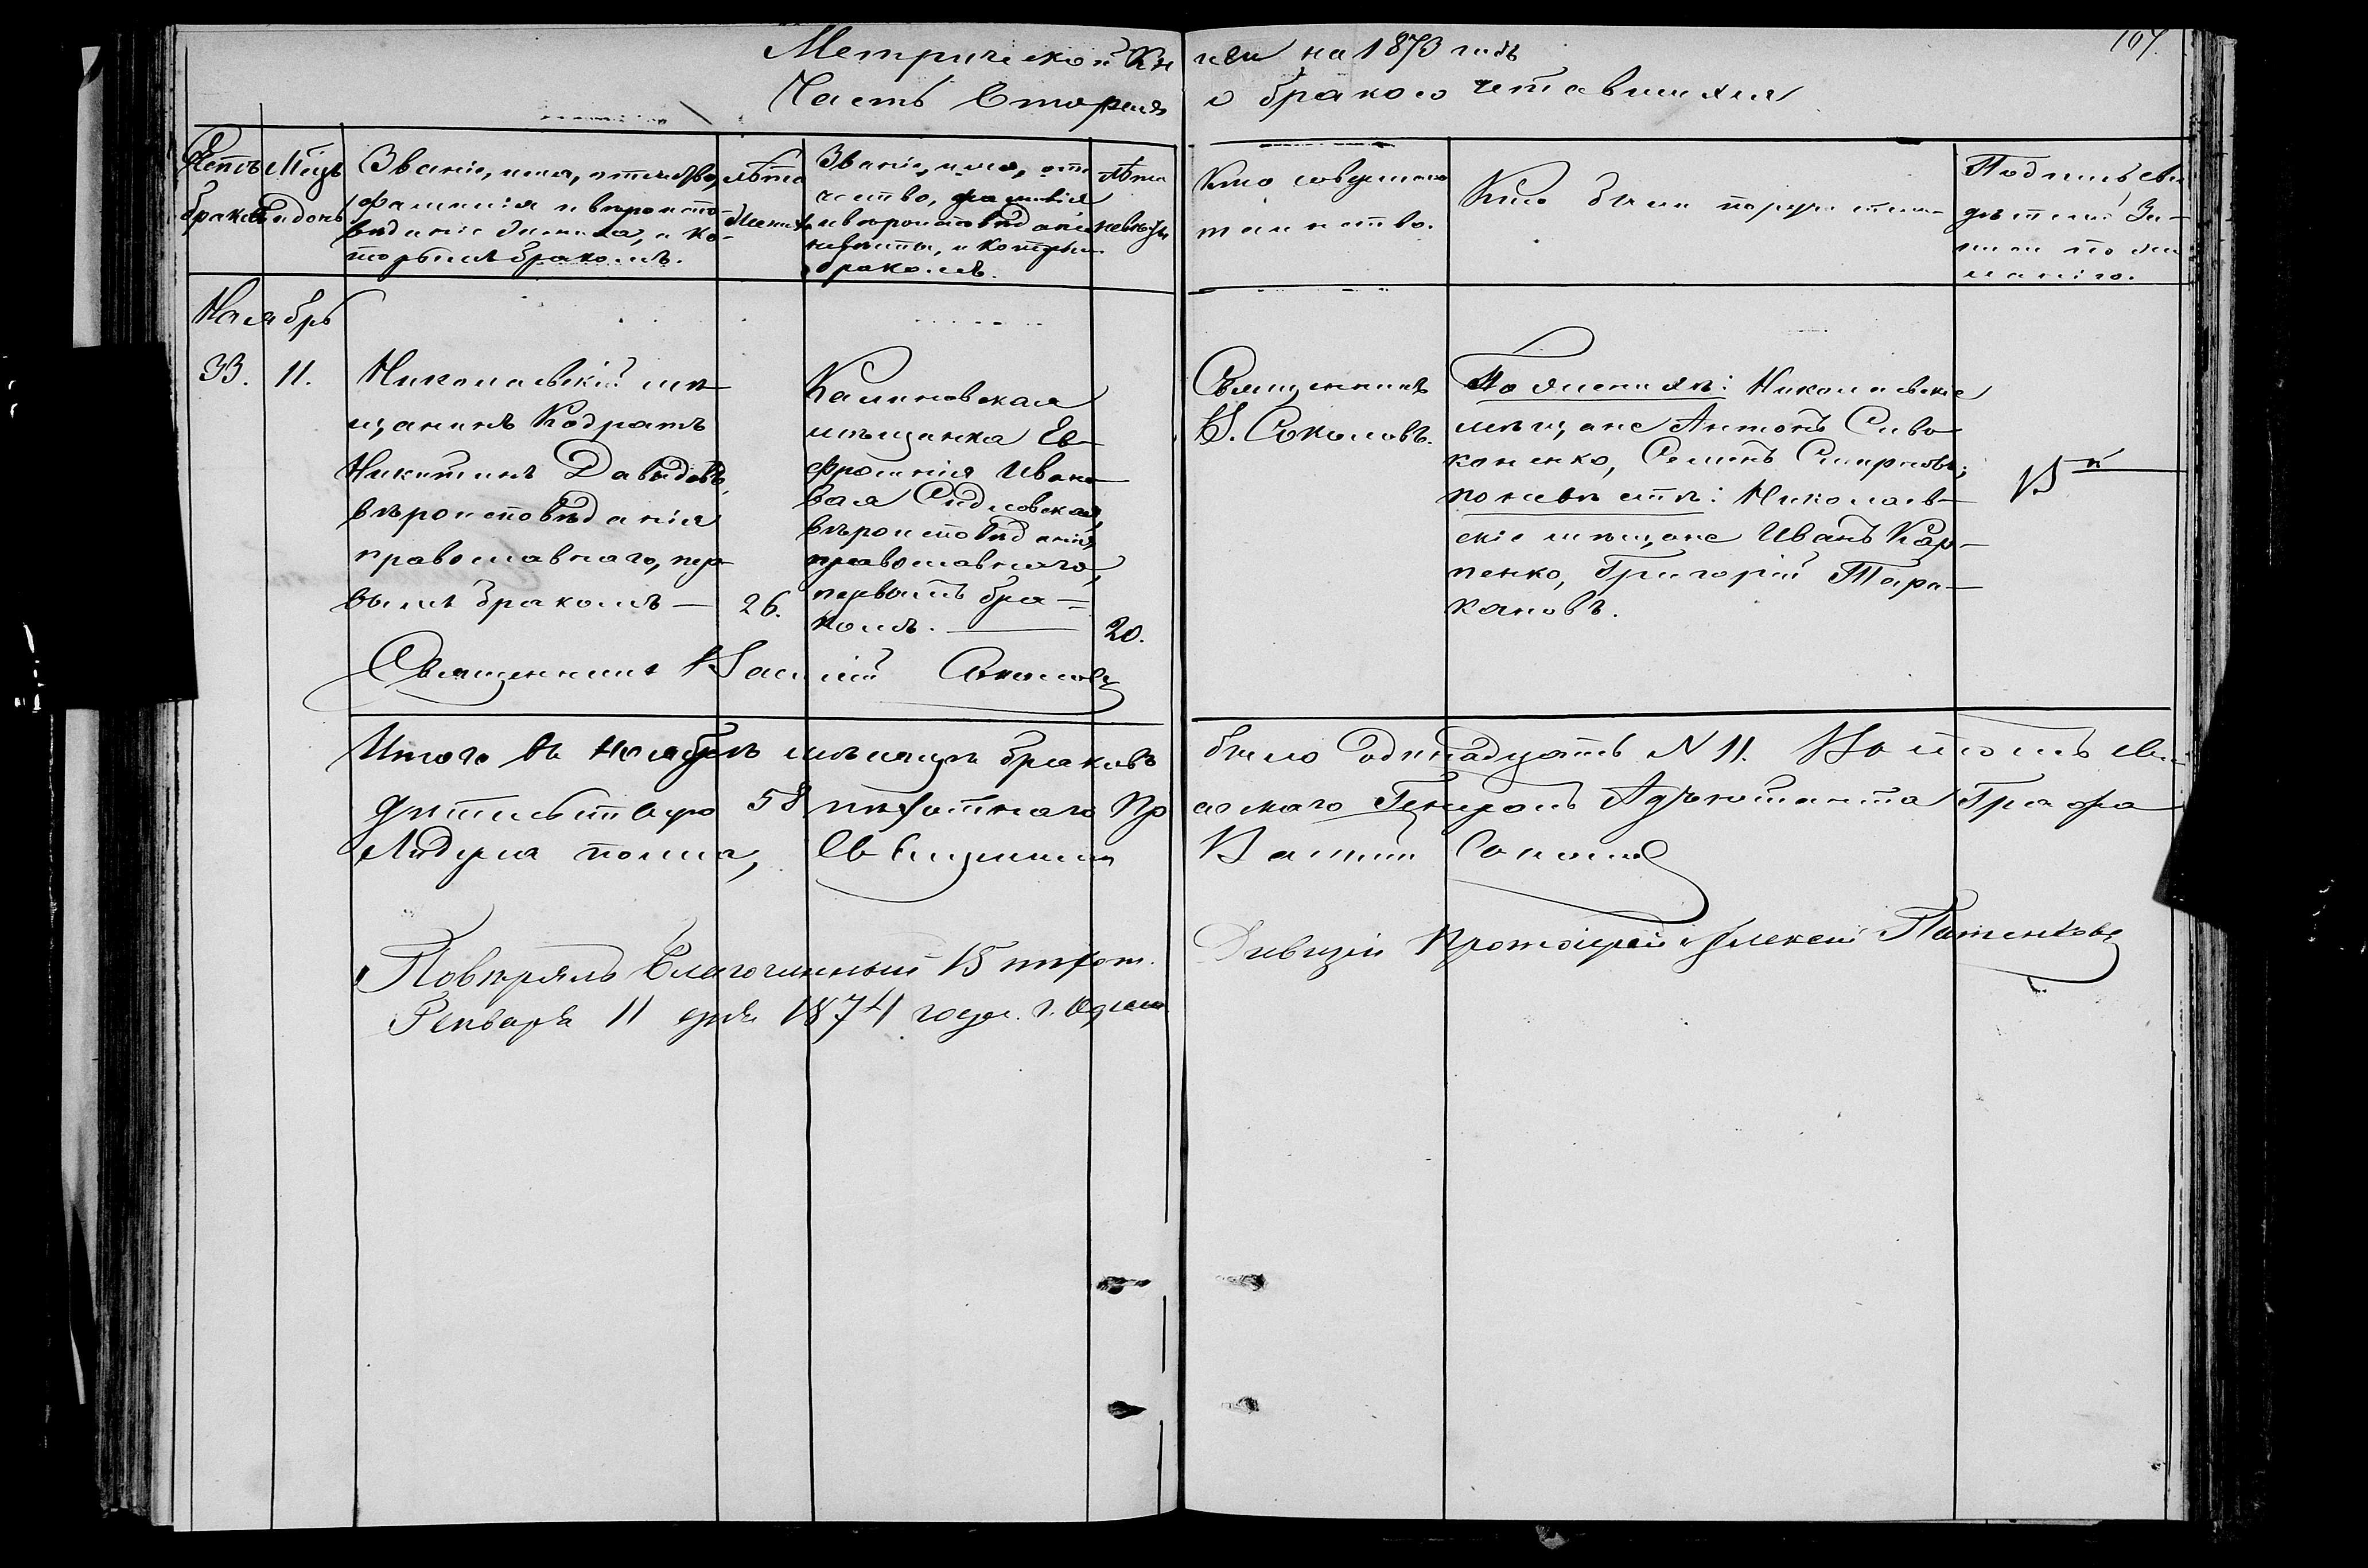 107.
Метрической Книги на 1873 годъ
Часть Вторая о бракосочетавшихся
Счетъ браковъ
Мѣсяцъ и день
Званіе, имя, отчество,
фамилія и вѣроиспо-
вѣданіе жениха, и ко-
торымъ бракомъ.
Лѣта
жениха
Званіе, имя, от
чество, фамилія
и вѣроисповѣданіе
невѣсты, и которым
бракомъ.
Лѣта
невѣсты
Кто совершалъ
таинство.
Кто были поручители
Подпись сви
дѣтелей За-
писи по же
ланію.
Ноябрь
33. 11.
Николаевскій мѣ-
щанинъ Кодратъ
Никитинъ Давыдовъ,
вѣроисповѣданія
православнаго, пер-
вымъ бракомъ —
26.
Калиновская
мѣщанка Ев-
фросинія Ивано-
вая
вѣроисповѣданія
православнаго,
первымъ бра=
комъ. —
20.
Священникъ
В. Соколовъ.
По женихѣ: Николаевскіе
мѣщане Антонъ Сиво
коненко, Семенъ Смирновъ;
по невѣстѣ: Николаев-
скіе мѣщане Иванъ Кар-
пенко, Григорій Тара-
кановъ.
Священникъ Василій Соколовъ
Итого въ Ноябрѣ мѣсяцѣ браковъ было одинадцать N 11. Въ томъ сви-
дѣтельствую 58 пѣхотнаго Прагскаго Генералъ Адъютанта Графа
Лидерса полка, Священникъ Василій Соколовъ
Повѣрялъ Благочинный 15 пѣхот. Дивизіи Протоіерей Алексій
Января 11 дня 1874 года. г. Одесса